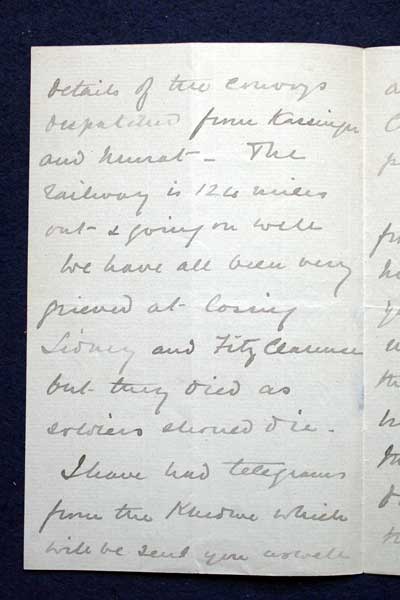 Details of the convoys
despatched from Kassinger
and Murat - The
railway is 124 miles
out - & going on well
We have all been very
grieved at losing
Sidney and FitzClarence
but they died as
soldiers should die.
I have had telegrams
from the Khedive which
will be sent you as well